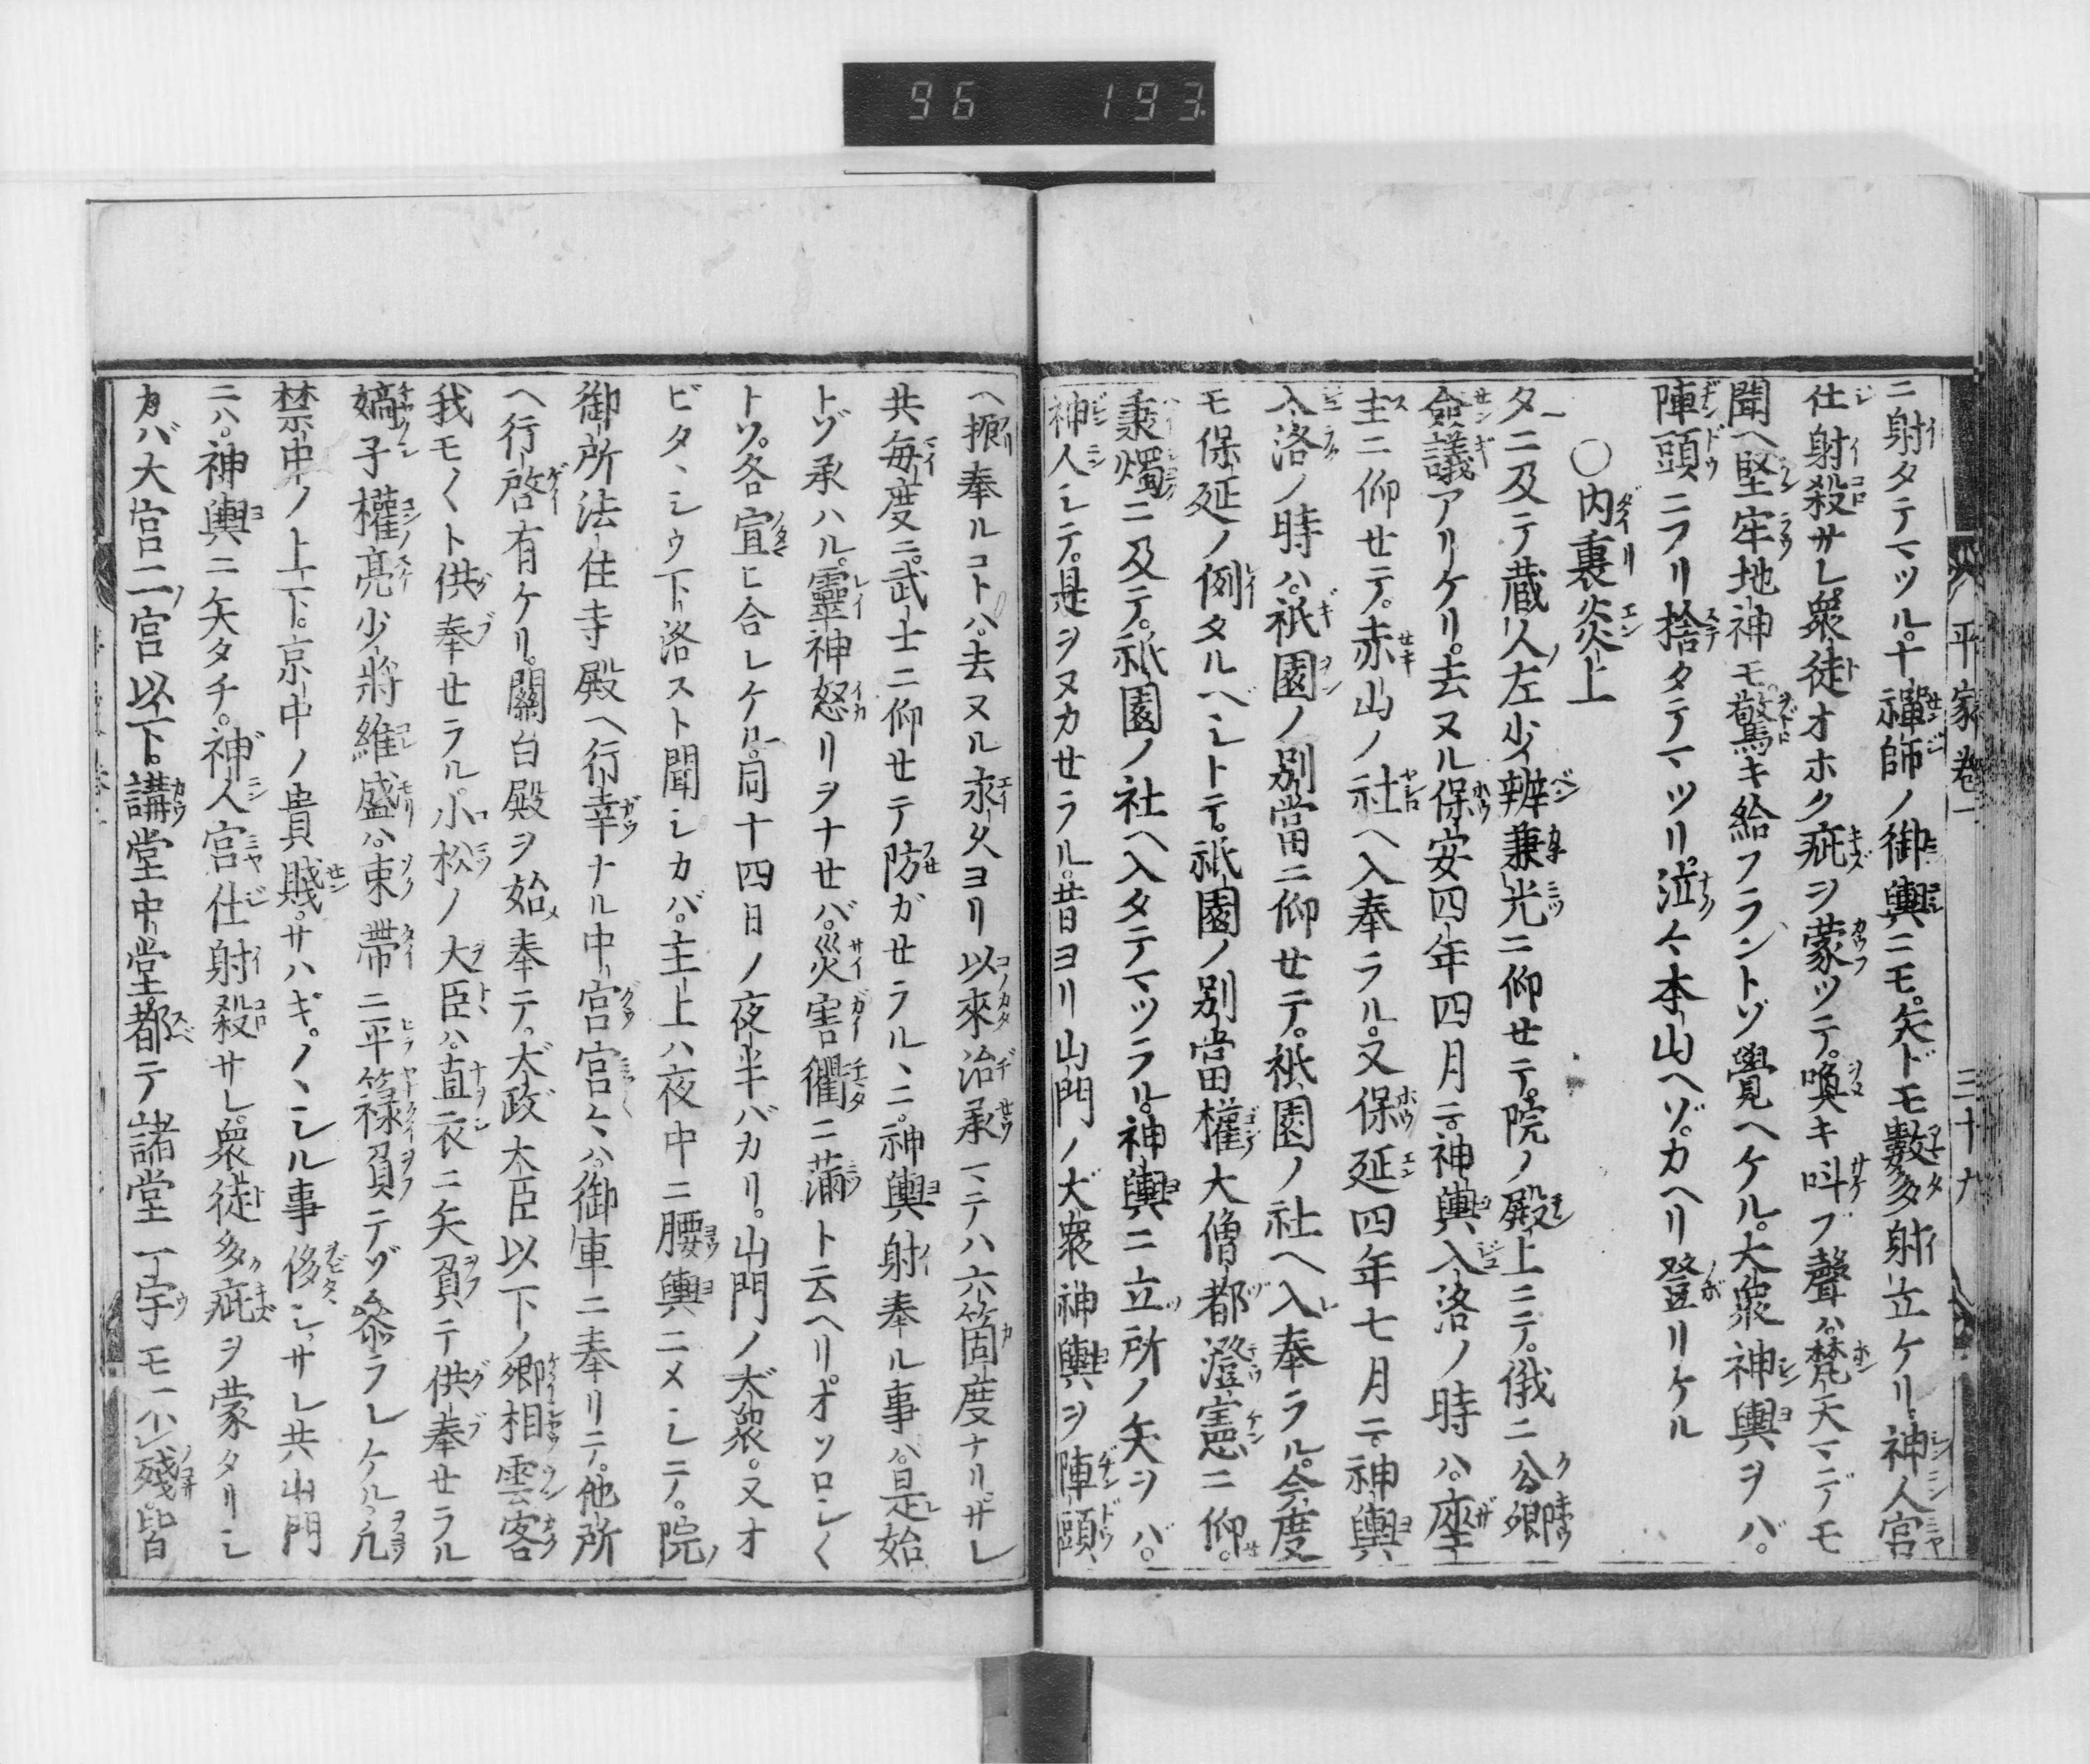 96 193
平家卷一 三十九
ニ射タテマツル。十禪師ノ御輿ニモ。矢ドモ數多射立ケリ。神人宮
仕射殺サレ衆徒オホク疵ヲ蒙ツテ。喚キ叫フ聲ハ。梵天マデモ
聞ヘ堅牢地神モ。驚キ給フラントゾ覺ヘケル。大衆神輿ヲバ。
陣頭ニフリ捨タテマツリ。泣々本山ヘゾ。カヘリ登リケル
○内裏炎上
夕ニ及テ蔵人左少辨兼光ニ仰せテ。院ノ殿上ニテ。俄ニ公卿
僉議アリケリ。去ヌル保安四年四月ニ。神輿入洛ノ時ハ。座
主ニ仰せテ。赤山ノ社ヘ入奉ラル。又保延四年七月ニ。神輿
入洛ノ時ハ。祇園ノ別當ニ仰せテ。祇園ノ社ヘ入奉ラル。今度
モ保延ノ例タルベシトテ。祇園ノ別當權大僧都澄憲ニ仰。
秉燭ニ及テ。祇園ノ社ヘ入タテマツラル。神輿ニ立所ノ矢ヲバ。
神人シテ。是ヲヌカせラル。昔ヨリ山門ノ大衆神輿ヲ陣頭
ヘ振奉ルコトハ。去ヌル永久ヨリ以來治承マテハ六箇度ナリ。サレ
共毎度ニ。武士ニ仰せテ防ガせラルヽニ。神輿射奉ル事ハ。是始
トゾ承ハル。靈神怒リヲナせバ。災害衢ニ滿ト云ヘリ。オソロシ〱
トゾ。各宣ヒ合レケル。同十四日ノ夜半バカリ。山門ノ大衆。又オ
ビタヽシウ下洛スト聞シカバ。主上ハ夜中ニ腰輿ニメシテ。院ノ
御所法住寺殿ヘ行幸ナル中宮宮々ハ。御車ニ奉リテ。他所
ヘ行啓有ケリ。關白殿ヲ始奉テ。太政大臣以下ノ卿相雲客
我モ〱ト供奉せラル。小松ノ大臣ハ。直衣ニ矢負テ供奉せラル
嫡子權亮少將維盛ハ。束帶ニ平籙負テゾ參ラレケル。凡
禁中ノ上下。京中ノ貴賤。サハギ。ノヽシル事侈シ。サレ共山門
ニハ。神輿ニ矢タチ。神人宮仕射殺サレ。衆徒多ク疵ヲ蒙タリシ
カバ大宮二宮以下。講堂中堂都テ諸堂一宇モ不殘。皆